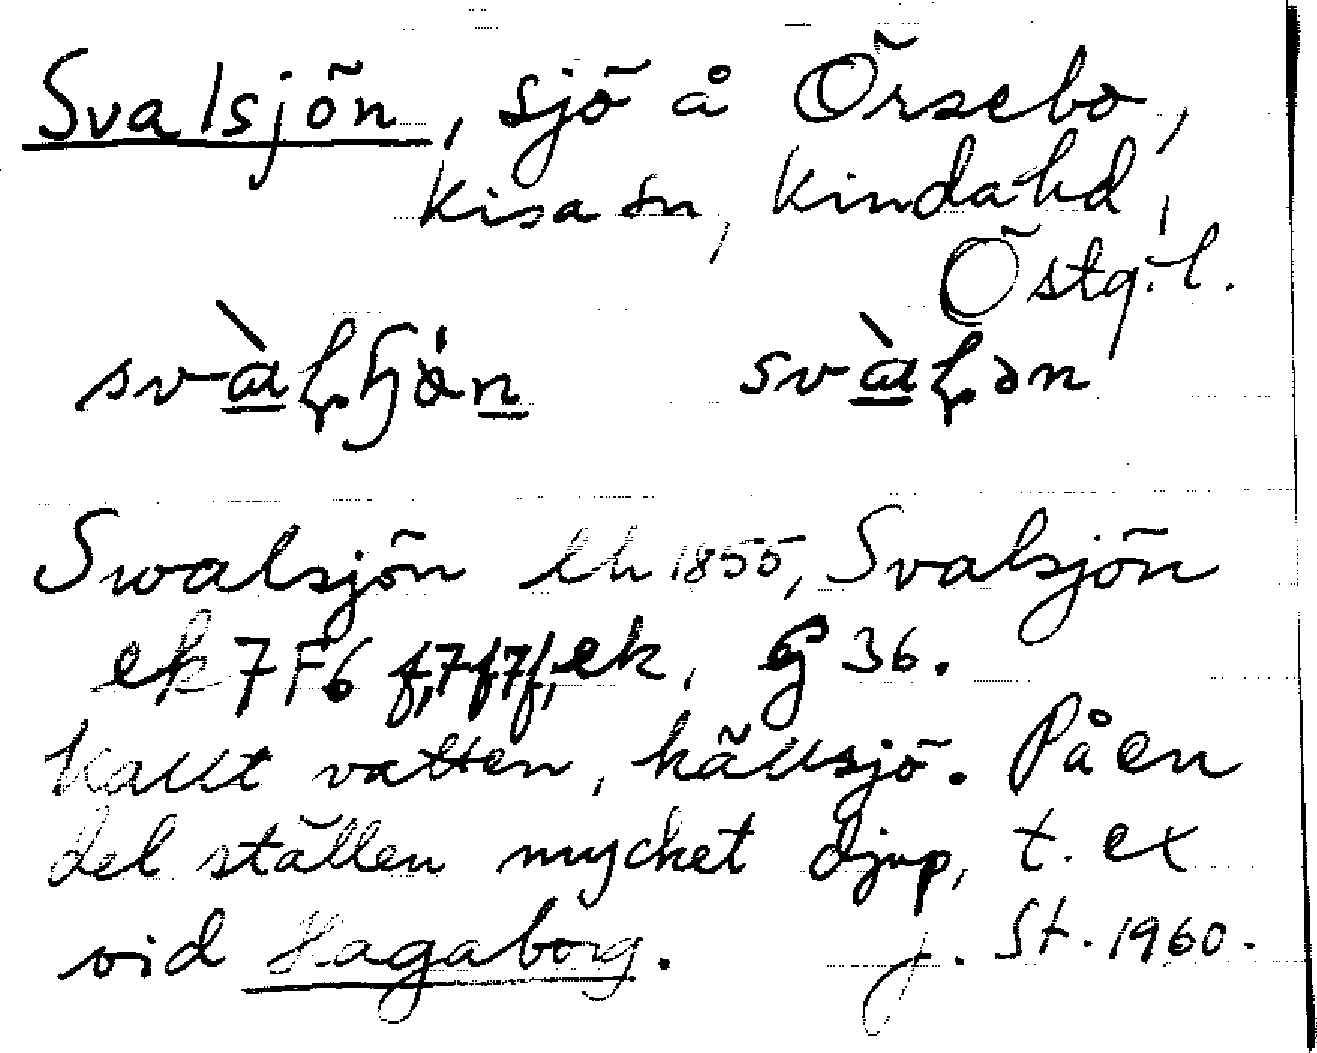 Svalsjön, sjö å Örsebo,
Kisa sn, Kinda hd,
Östg. l.
Swalsjön lh 1855, Svalsjön
ek 7 F6 ek, G 36.
Kallt vatten, källsjö. På en
del ställen mycket djup, t. ex
vid Hagaborg. J. St. 1960.